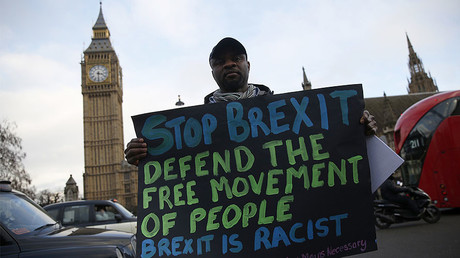 STOP BREXIT
DEFEND THE
FREE MOVEMENT
OF PEOPLE
BREXIT IS RACIST
Necessary
211